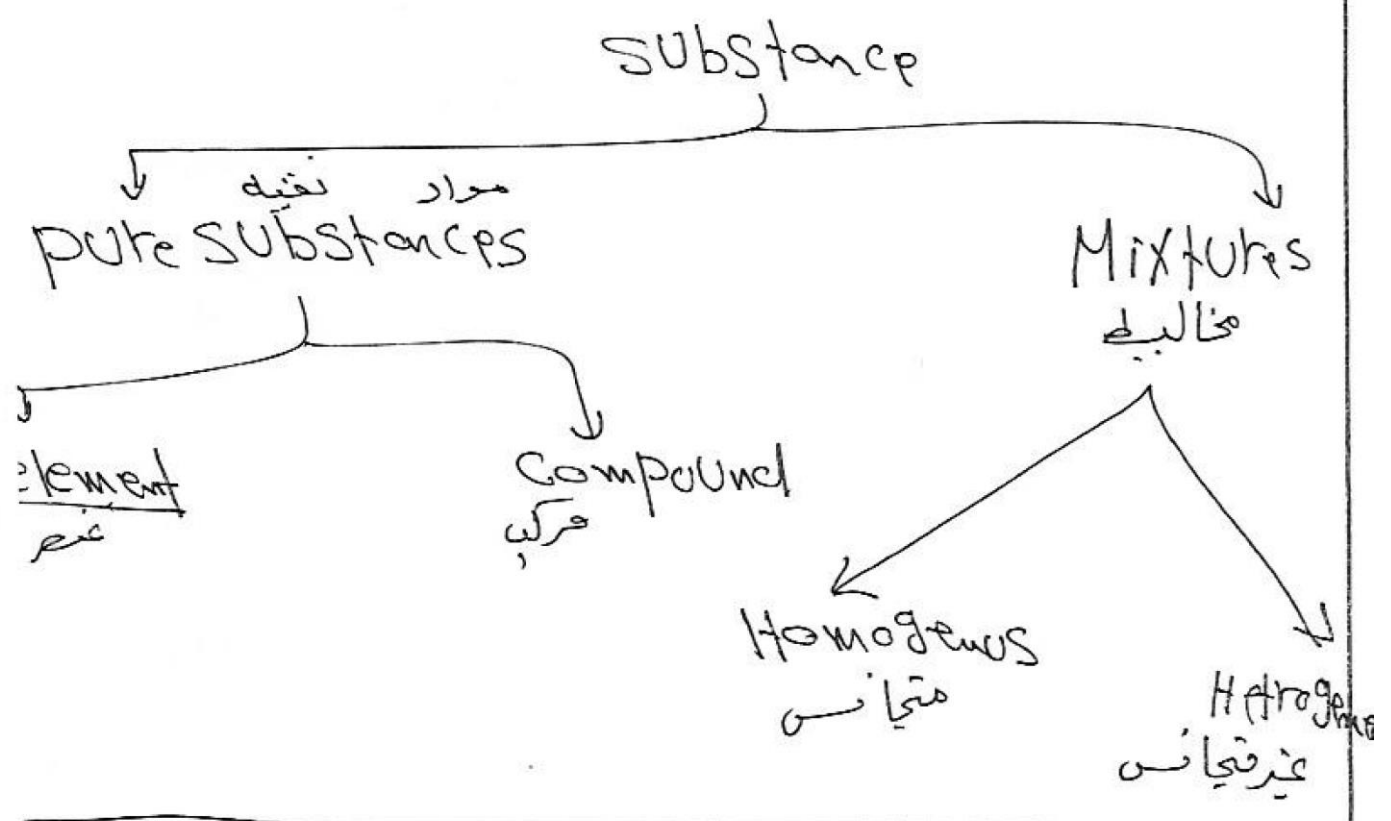 Substance
مواد نقيه
pure substances
Mixtures
مخاليط
element
عنصر
Compound
مركب
Homogenus
متجانس
Hetrogen
غير متجانس